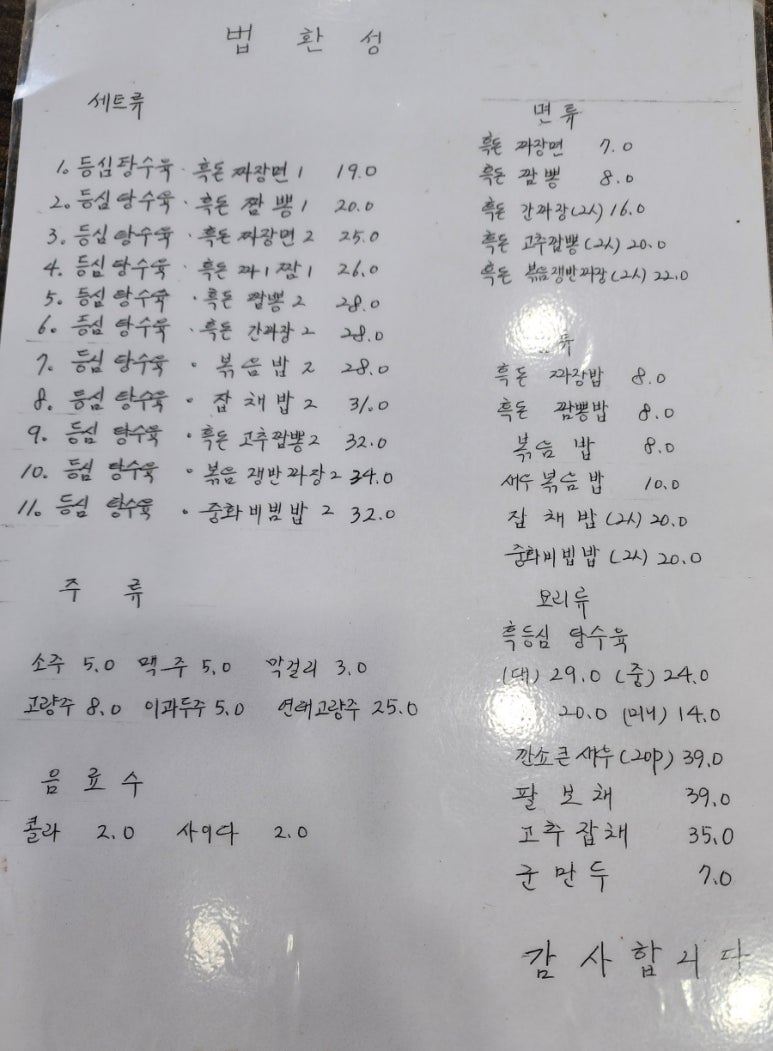 법환성
세트류
1. 등심탕수육 · 흑돈 짜장면 1 19.0
2. 등심 탕수육 · 흑돈 짬뽕 1 20.0
3. 등심 탕수육 · 흑돈 짜장면 2 25.0
4. 등심 탕수육 · 흑돈 짜1 짬1 26.0
5. 등심 탕수육 · 흑돈 짬뽕 2 28.0
6. 등심 탕수육 · 흑돈 간짜장 2 28.0
7. 등심 탕수육 · 볶음밥 2 28.0
8. 등심 탕수육 · 잡채밥 2 31.0
9. 등심 탕수육 · 흑돈 고추짬뽕 2 32.0
10. 등심 탕수육 · 볶음 쟁반짜장 2 34.0
11. 등심 탕수육 · 중화비빔밥 2 32.0
주류
소주 5.0 맥주 5.0 막걸리 3.0
고량주 8.0 이과두주 5.0 연태고량주 25.0
음료수
콜라 2.0 사이다 2.0
면류
흑돈 짜장면 7.0
흑돈 짬뽕 8.0
흑돈 간짜장(2人) 16.0
흑돈 고추짬뽕(2人) 20.0
흑돈 볶음쟁반짜장(2人) 22.0
류
흑돈 짜장밥 8.0
흑돈 짬뽕밥 8.0
볶음밥 8.0
새우볶음밥 10.0
잡채밥(2人) 20.0
중화비빕밥(2人) 20.0
요리류
흑등심 탕수육
(대) 29.0 (중) 24.0
20.0 (미니) 14.0
깐쇼큰새우(20p) 39.0
팔보채 39.0
고추잡채 35.0
군만두 7.0
감사합니다